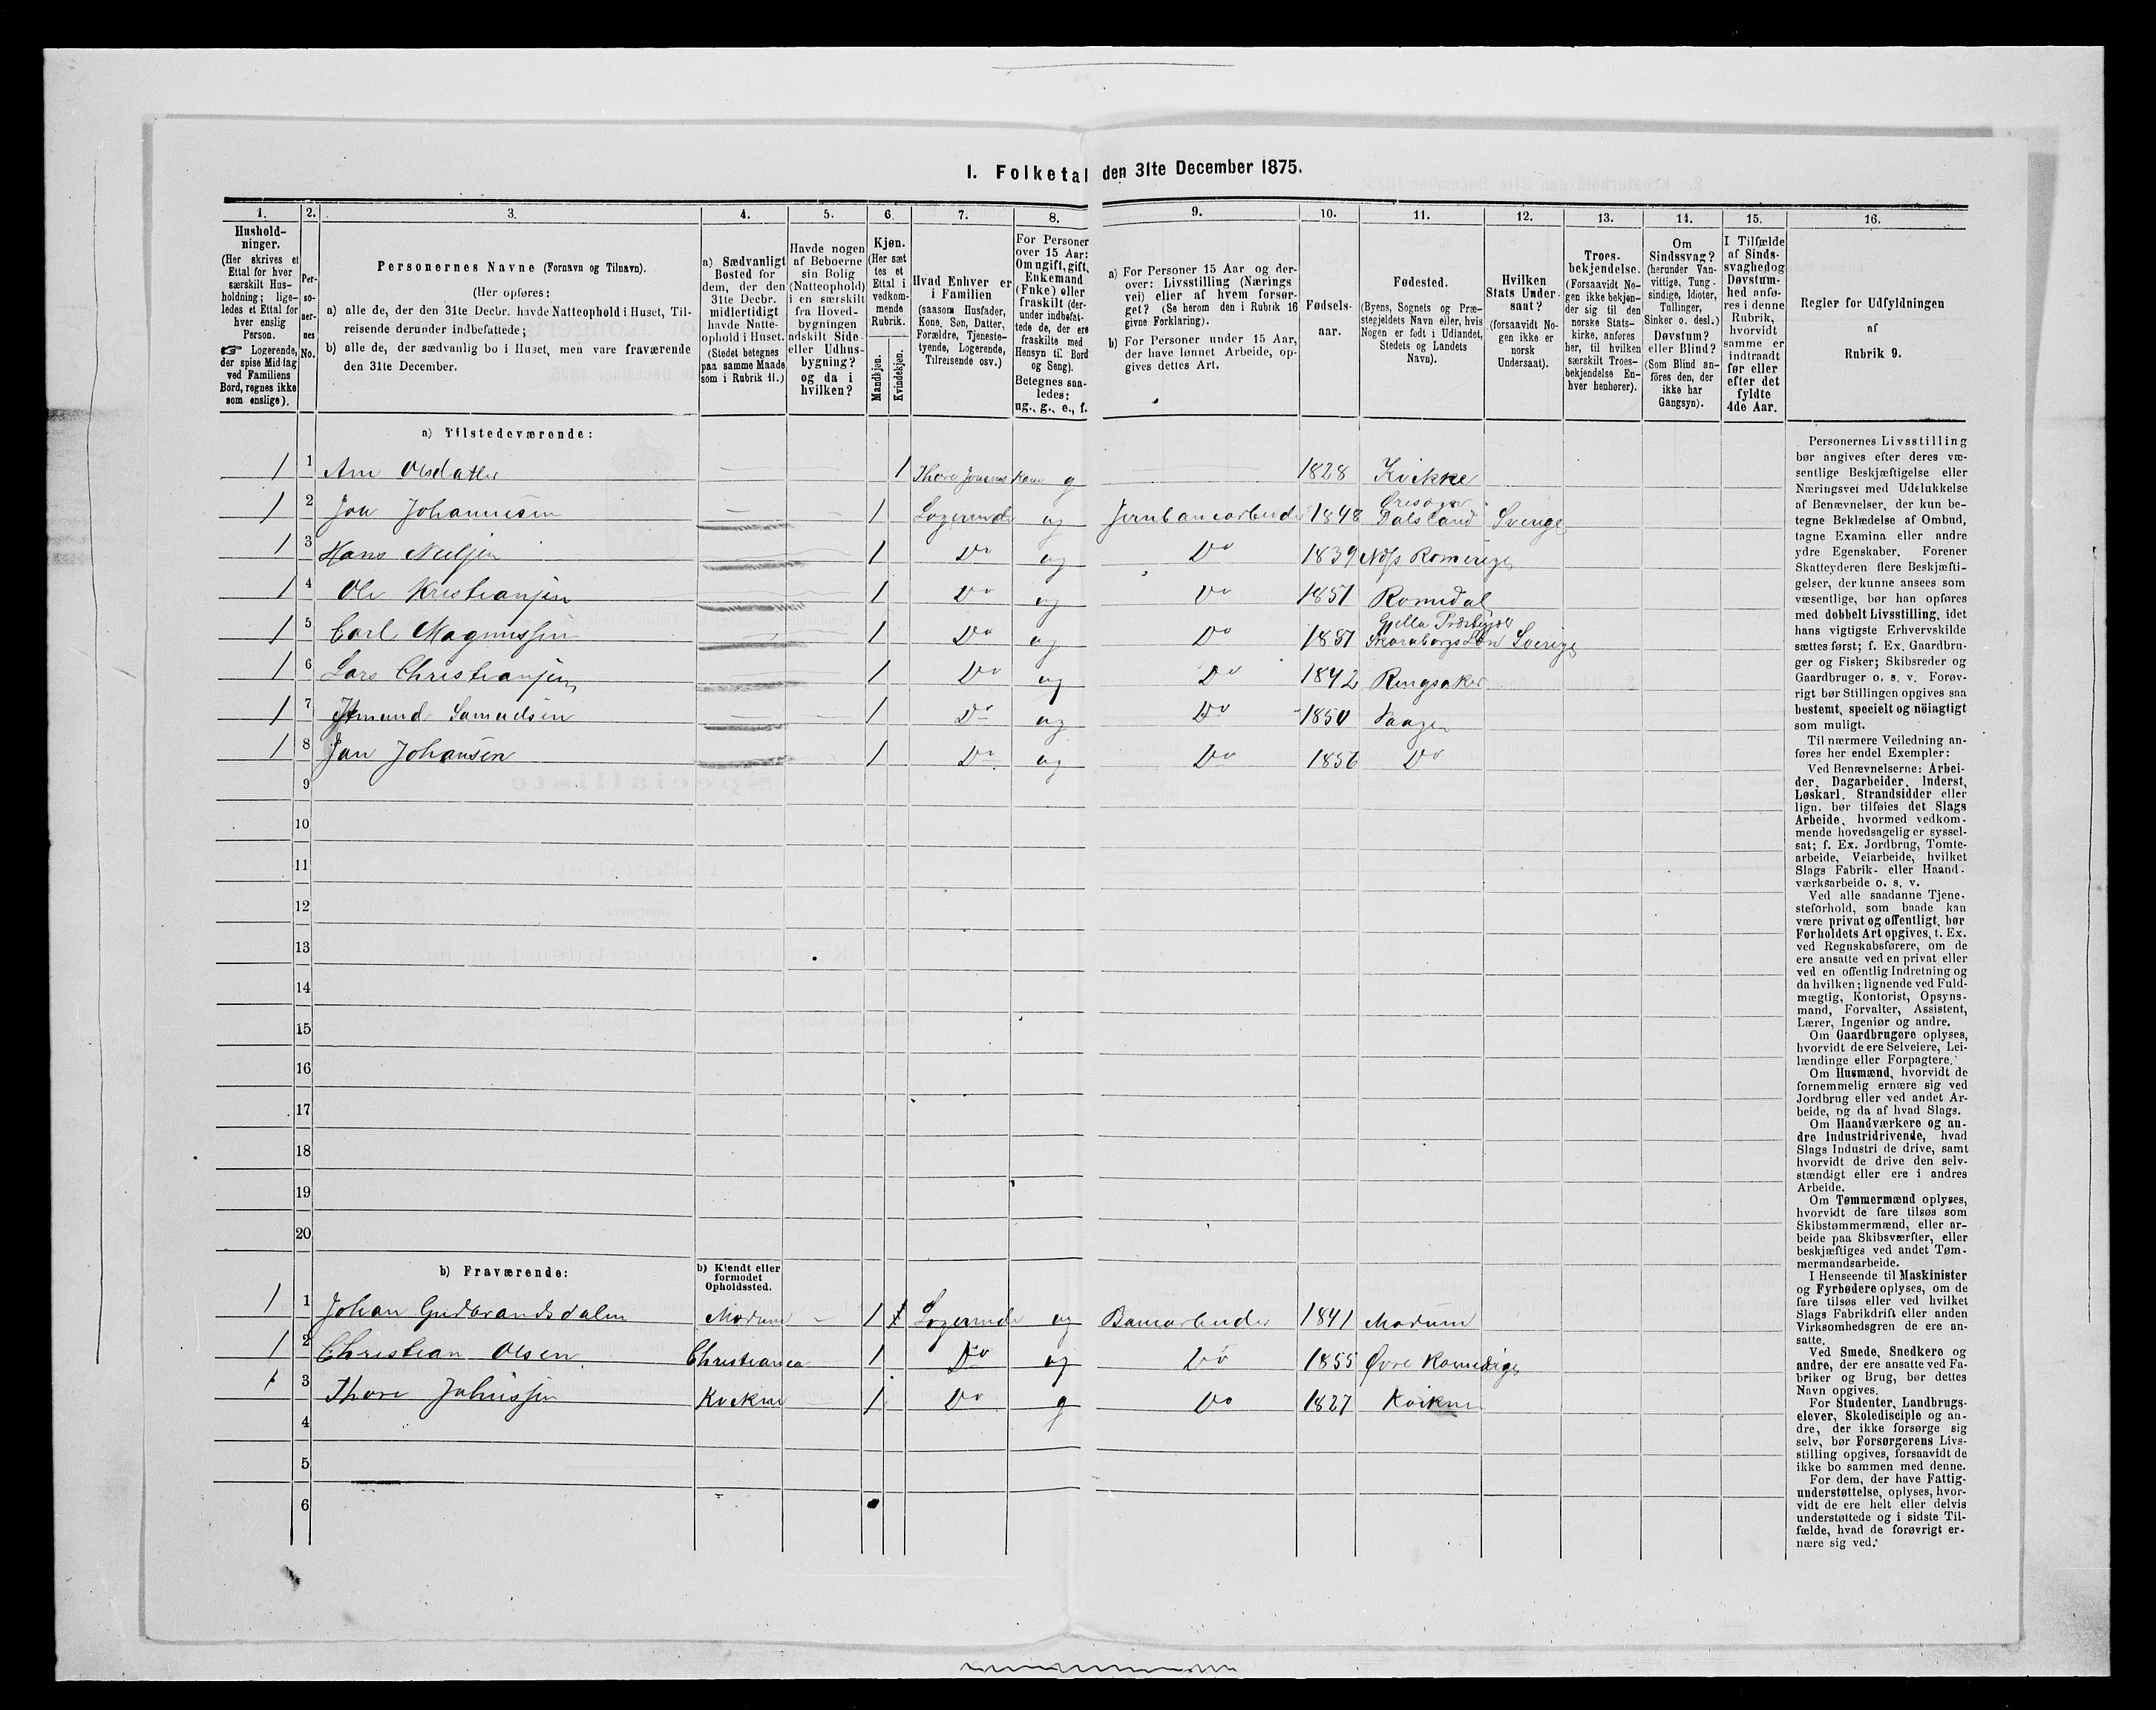 I. Folketal den 31te December 1875.
1. 2. 3. 4. 5. 6. 7. 8. 9. 10. 11. 12. 13. 14. 15. 16.
Hushold-
ninger.
(Her skrives et
Ettal for hver
særskilt Hus-
holdning; lige-
ledes et Ettal for
hver enslig
Person.
☞ Logerende,
der spise Middag
ved Familiens
Bord, regnes ikke
som enslige).
Per-
so-
ner-
nes
No.
Personernes Navne (Fornavn og Tilnavn).
(Her opføres:
a) alle de, der den 31te Decbr. havde Natteophold i Huset, Til-
reisende derunder indbefattede;
b) alle de, der sædvanlig bo i Huset, men vare fraværende
den 31te December.
a) Sædvanligt
Bosted for
dem, der den
31te Decbr.
midlertidigt
havde Natte-
ophold i Huset.
(Stedet betegnes
paa samme Maade
som i Rubrik 11.)
Havde nogen
af Beboerne
sin Bolig
(Natteophold)
i en særskilt
fra Hoved-
bygningen
adskilt Side-
eller Udhus-
bygning?
og da i
hvilken?
Kjøn.
(Her sæt
tes et
Ettal i
vedkom-
mende
Rubrik.
Mandkjøn.
Kvindekjøn.
Hvad Enhver er
i Familien
(saasom Husfader,
Kone, Søn, Datter,
Forældre, Tjeneste-
tyende, Logerende,
Tilreisende osv.)
For Personer
over 15 Aar:
Om ugift, gift,
Enkemand
(Enke) eller
fraskilt (der-
under indbefat-
tede de, der ere
fraskilte med
Hensyn til Bord
og Seng).
Betegnes saa-
ledes:
ug., g., e., f.
a) For Personer 15 Aar og der-
over: Livsstilling (Nærings
vei) eller af hvem forsør-
get? (Se herom den i Rubrik 16
givne Forklaring).
b) For Personer under 15 Aar,
der have lønnet Arbeide, op-
gives dettes Art.
Fødsels-
aar.
Fødested.
(Byens, Sognets og Præ-
stegjeldets Navn eller, hvis
Nogen er født i Udlandet,
Stedets og Landets
Navn).
Hvilken
Stats Under-
saat?
(forsaavidt No-
gen ikke er
norsk
Undersaat).
Troes-
bekjendelse.
(Forsaavidt No-
gen ikke bekjen-
der sig til den
norske Stats-
kirke, anføres
her, til hvilken
særskilt Troes-
bekjendelse En-
hver henhører).
Om
Sindssvag?
(herunder Van-
vittige, Tung-
sindige, Idioter,
Tullinger,
Sinker o. desl.)
Døvstum?
eller Blind?
(Som Blind an-
föres den, der
ikke har
Gangsyn).
I Tilfælde
af Sinds-
svaghed og
Døvstum-
hed anfø-
res i denne
Rubrik,
hvorvidt
samme er
indtraadt
før eller
efter det
fyldte
4de Aar.
Regler for Udfyldningen
af
Rubrik 9.
a) Tilstedeværende:
1 1 Ane Olsdatter 1 Thore Jonsens Kone g 1828 Kvikne
1 2 Jon Johannesen 1 Logerende ug Jernbanearbeider 1848 Dalsland Sverige
1 3 Hans Nielsen 1 Do ug Do 1839 Næs Romerige
1 4 Ole Kristiansen 1 Do ug Do 1851 Romedal
1 5 Carl Magnussen 1 Do ug Do 1851 Skaraborgs Län Sverige
1 6 Lars Christiansen 1 Do ug Do 1842 Ringsaker
1 7 Amund Samuelsen 1 Do ug Do 1850 Vaage
1 8 Jan Johansen 1 Do ug Do 1856 Do
9
10
11
12
13
14
15
16
17
18
19
20
b) Fraværende:
b) Kjendt eller
formodet
Opholdssted.
1 1 Johan Gudbrandsdalen Modum 1 Logerende ug Banearbeider 1841 Modum
1 2 Christian Olsen Christiania 1 Do ug Do 1855 Øvre Romerige
1 3 Thore Johnssen Kvikne 1 Do g Do 1827 Kvikne
4
5
6
Personernes Livsstilling
bør angives efter deres væ-
sentlige Beskjæftigelse eller
Næringsvei med Udelukkelse
af Benævnelser, der kun be-
tegne Beklædelse af Ombud,
tagne Examina eller andre
ydre Egenskaber. Forener
Skatteyderen flere Beskjæfti-
gelser, der kunne ansees som
væsentlige, bør han opføres
med dobbelt Livsstilling, idet
hans vigtigste Erhvervskilde
sættes først; f. Ex. Gaardbru-
ger og Fisker; Skibsreder og
Gaardbruger o. s. v. Forøv-
rigt bør Stillingen opgives saa
bestemt, specielt og nöiagtigt
som muligt.
Til nærmere Veiledning an-
føres her endel Exempler:
Ved Benævnelserne: Arbei-
der, Dagarbeider, Inderst,
Løskarl, Strandsidder eller
lign. bør tilføies det Slags
Arbeide, hvormed vedkom-
mende hovedsagelig er syssel-
sat; f. Ex. Jordbrug, Tomte-
arbeide, Veiarbeide, hvilket
Slags Fabrik- eller Haand-
værksarbeide o. s. v.
Ved alle saadanne Tjene-
steforhold, som baade kan
være privat og offentligt, bør
Forholdets Art opgives, t. Ex.
ved Regnskabsførere, om de
ere ansatte ved en privat eller
ved en offentlig Indretning og
da hvilken; lignende ved Fuld-
mægtig, Kontorist, Opsyns-
mand, Forvalter, Assistent,
Lærer, Ingeniør og andre.
Om Gaardbrugere oplyses,
hvorvidt de ere Selveiere, Lei-
lændinge eller Forpagtere.
Om Husmænd, hvorvidt de
fornemmelig ernære sig ved
Jordbrug eller ved andet Ar-
beide, og da af hvad Slags.
Om Haandværkere og an-
dre Industridrivende, hvad
Slags Industri de drive, samt
hvorvidt de drive den selv-
stændigt eller ere i andres
Arbeide.
Om Tømmermænd oplyses,
hvorvidt de fare tilsøs som
Skibstømmermænd, eller ar-
beide paa Skibsværfter, eller
beskjæftiges ved andet Tøm-
mermandsarbeide.
I Henseende til Maskinister
og Fyrbødere oplyses, om de
fare tilsøs eller ved hvilket
Slags Fabrikdrift eller anden
Virksomhedsgren de ere an-
satte.
Ved Smede, Snedkere og
andre, der ere ansatte ved Fa-
briker og Brug, bør dettes
Navn opgives.
For Studenter, Landbrugs-
elever, Skoledisciple og an-
dre, der ikke forsørge sig
selv, bør Forsørgerens Livs-
stilling opgives, forsaavidt de
ikke bo sammen med denne.
For dem, der have Fattig-
understøttelse, oplyses, hvor-
vidt de ere helt eller delvis
understøttede og i sidste Til-
fælde, hvad de forøvrigt er-
nære sig ved.